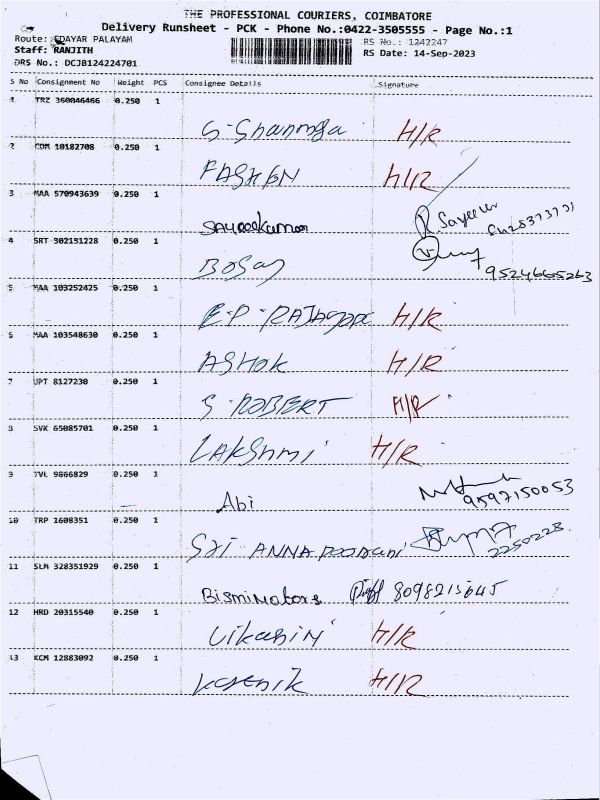 THE PROFESSIONAL COURIERS, COIMBATORE
Delivery Runsheet - PCK - Phone No.:0422-3505555 - Page No.:1
Route: EDAYAR PALAYAM RS No.: 1242247
Staff: RANJITH RS Date: 14-Sep-2023
DRS No.: DCJB124224701
S No Consignment No Weight PCS Consignee Details Signature
1 TRZ 360046466 0.250 1
S. Shanmga H/R
2 COM 10182708 0.250 1
FASHEN H/R
3 MAA 570943639 0.250 1
R. Sayee
4 SRT 302151228 0.250 1
BOSay 9524665263
5 MAA 103252425 0.250 1
E.P. H/R
6 MAA 103548630 0.250 1
ASHOK H/R
7 UPT 8127230 0.250 1
S. ROBERT H/R
8 SVK 65085701 0.250 1
LAKShmi H/R
9 TVL 9866829 0.250 1
Abi 9597150053
10 TRP 1608351 0.250 1
Sri ANNA POORani 2250228
11 SLM 328351929 0.250 1
Bismi Motors 8098215645
12 HRD 20315540 0.250 1
Vikashini H/R
13 KCM 12883092 0.250 1
H/R